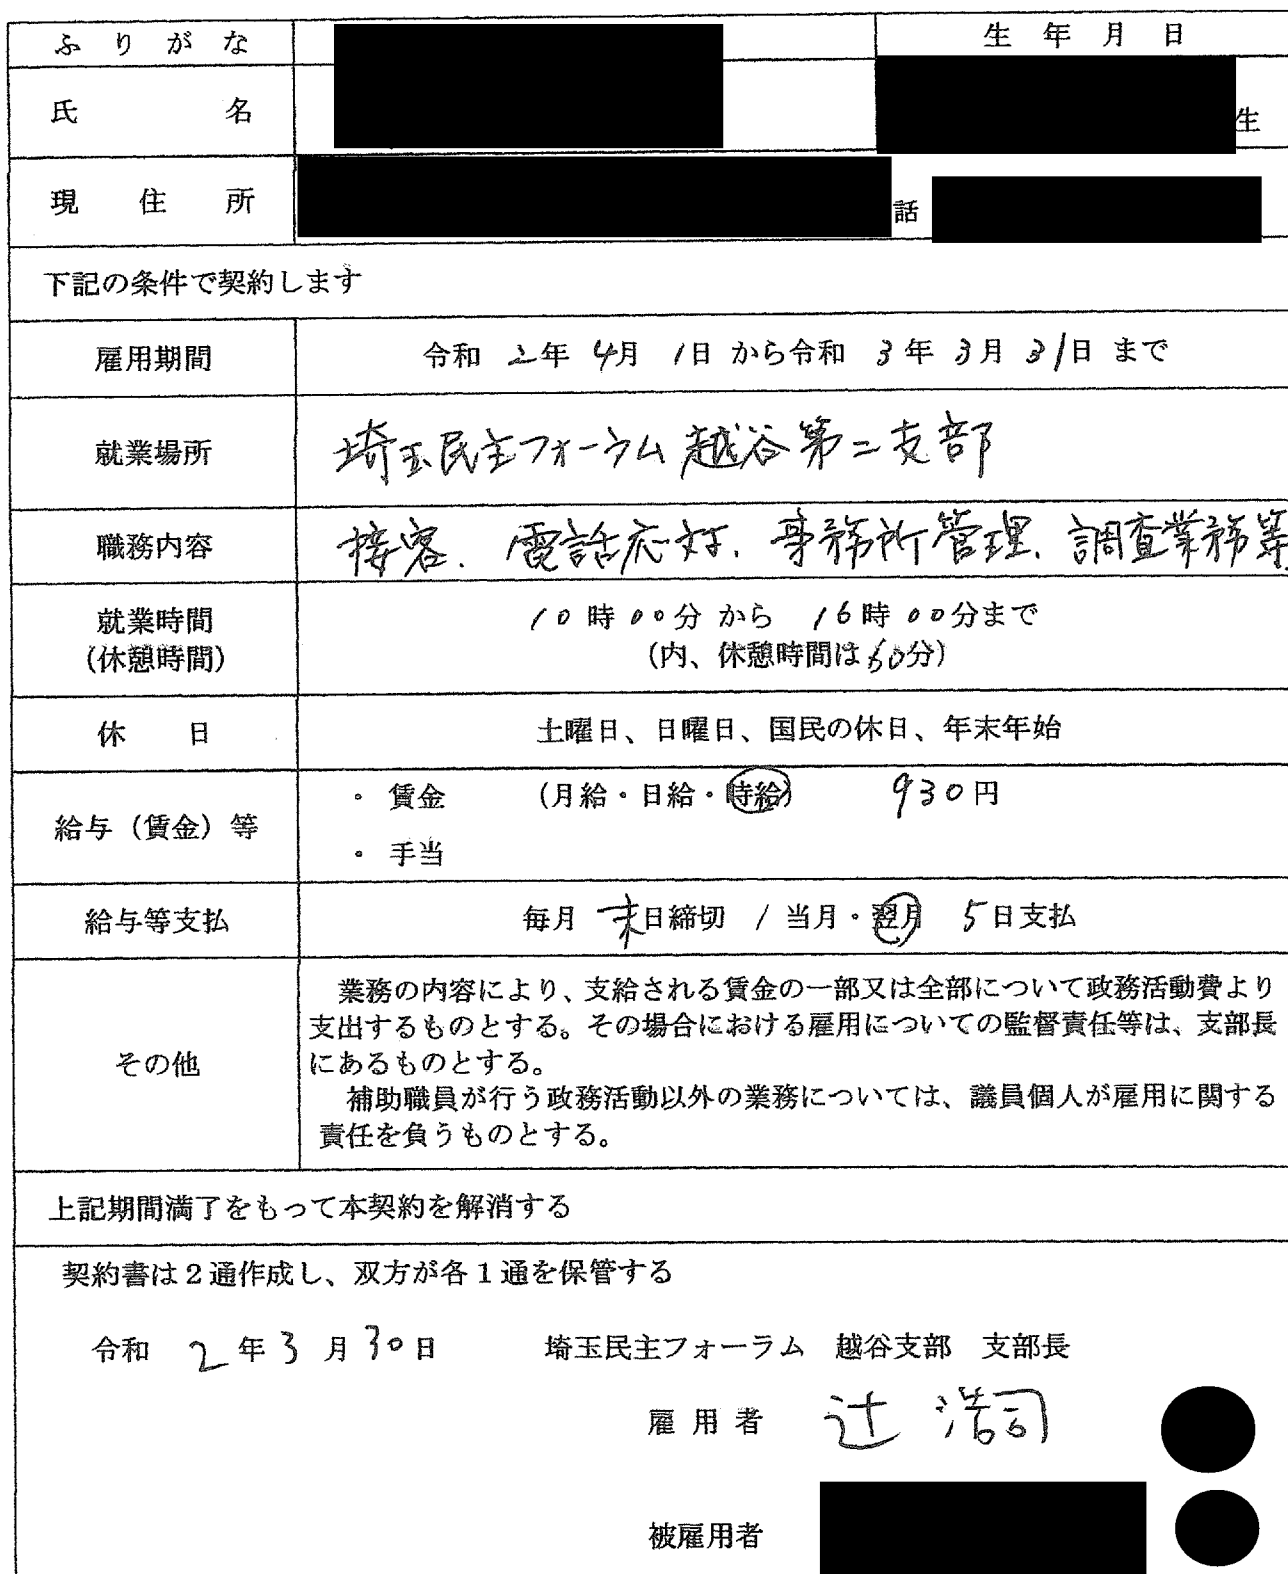 ふりがな
生年月日
氏名
生
現住所
話
下記の条件で契約します
雇用期間
令和 2年 4月 1日 から令和 3年 3月 31日 まで
就業場所
埼玉民主フォーラム越谷第二支部
職務内容
接客、電話応対、事務所管理、調査業務等
就業時間
(休憩時間)
10時00分 から 16時00分まで
(内、休憩時間は60分)
休日
土曜日、日曜日、国民の休日、年末年始
給与（賃金）等
・ 賃金 (月給・日給・時給) 930円
・ 手当
給与等支払
毎月 末日締切 / 当月・翌月 5日支払
その他
業務の内容により、支給される賃金の一部又は全部について政務活動費より
支出するものとする。その場合における雇用についての監督責任等は、支部長
にあるものとする。
補助職員が行う政務活動以外の業務については、議員個人が雇用に関する
責任を負うものとする。
上記期間満了をもって本契約を解消する
契約書は２通作成し、双方が各１通を保管する
令和 2年3月30日 埼玉民主フォーラム 越谷支部 支部長
雇用者 辻 浩司
被雇用者